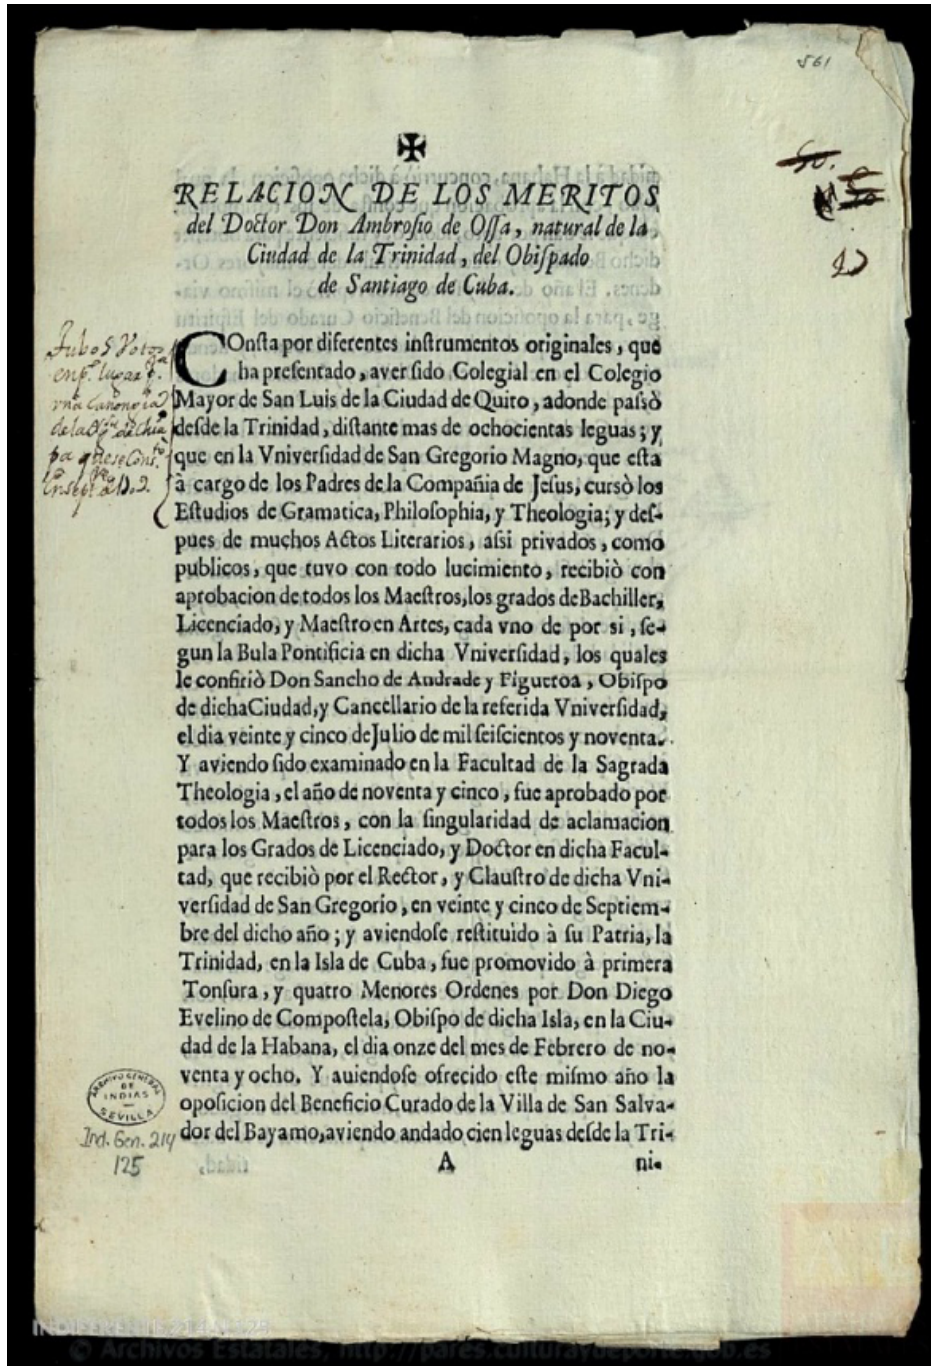 561
✠
RELACION DE LOS MERITOS
del Doctor Don Ambrosio de Ossa, natural de la
Ciudad de la Trinidad, del Obispado
de Santiago de Cuba.
COnsta por diferentes instrumentos originales, que
ha presentado, aver sido Colegial en el Colegio
Mayor de San Luis de la Ciudad de Quito, adonde passò
desde la Trinidad, distante mas de ochocientas leguas; y
que en la Vniversidad de San Gregorio Magno, que esta
à cargo de los Padres de la Compañia de Jesus, cursò los
Estudios de Gramatica, Philosophia, y Theologia; y des-
pues de muchos Actos Literarios, assi privados, como
publicos, que tuvo con todo lucimiento, recibiò con
aprobacion de todos los Maestros, los grados de Bachiller,
Licenciado, y Maestro en Artes, cada vno de por si, se-
gun la Bula Pontificia en dicha Vniversidad, los quales
le confiriò Don Sancho de Andrade y Figueroa, Obispo
de dicha Ciudad, y Cancellario de la referida Vniversidad,
el dia veinte y cinco de Julio de mil seiscientos y noventa.
Y aviendo sido examinado en la Facultad de la Sagrada
Theologia, el año de noventa y cinco, fue aprobado por
todos los Maestros, con la singularidad de aclamacion
para los Grados de Licenciado, y Doctor en dicha Facul-
tad, que recibiò por el Rector, y Claustro de dicha Vni-
versidad de San Gregorio, en veinte y cinco de Septiem-
bre del dicho año; y aviendose restituido à su Patria, la
Trinidad, en la Isla de Cuba, fue promovido à primera
Tonsura, y quatro Menores Ordenes por Don Diego
Evelino de Compostela, Obispo de dicha Isla, en la Ciu-
dad de la Habana, el dia onze del mes de Febrero de no-
venta y ocho. Y auiendose ofrecido este mismo año la
oposicion del Beneficio Curado de la Villa de San Salva-
dor del Bayamo, aviendo andado cien leguas desde la Tri-
A ni-
Tubo 5 Votos
en pr. lugar pa.
vna Canongia
de la de Chia
pa que se Consto.
en
ARCHIVO GENERAL
DE
INDIAS
SEVILLA
Ind. Gen. 214
125
© Archivos Estatales, http://pares.culturaydeporte.gob.es